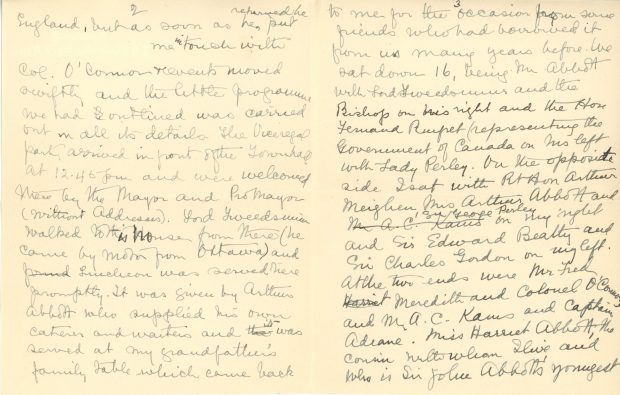 2
returned he
England, but as soon as he, put
me in touch with
Col. O'Connor events moved
swiftly and the little programme
we had outlined was carried
out in all its details. The Viceregal
party arrived in front of the Townhall
at 12.45 pm and were welcomed
there by the Mayor and Pro Mayor
(without Addresses). Lord Tweedsmuir
walked to this house from there (he
came by motor from Ottawa) and
found luncheon was served here
promptly. It was given by Arthur
Abbott who supplied his own
caterer and waiters and was
served at my grandfather's
family table which came back
3
to me for the occasion from some
friends who had borrowed it
from us many years before. We
sat down 16, being Mr Abbott
with Lord Tweedsmuir and the
Bishop on his right and the Hon
Fernand Rinfret (representing the
Government of Canada on his left
with Lady Perley. On the opposite
side I sat with Rt Hon Arthur
Meighen Mrs Arthur Abbott and
Sir George Perley
Mr A. C. Kains on my right
and Sir Edward Beatty and
Sir Charles Gordon on my left.
At the two ends were Mr Fred
Harriet Meredith and Colonel O'Connor
and Mr A. C. Kains and Captain
Adeane. Miss Harriet Abbott the
cousin with whom I live and
who is Sir John Abbott's youngest